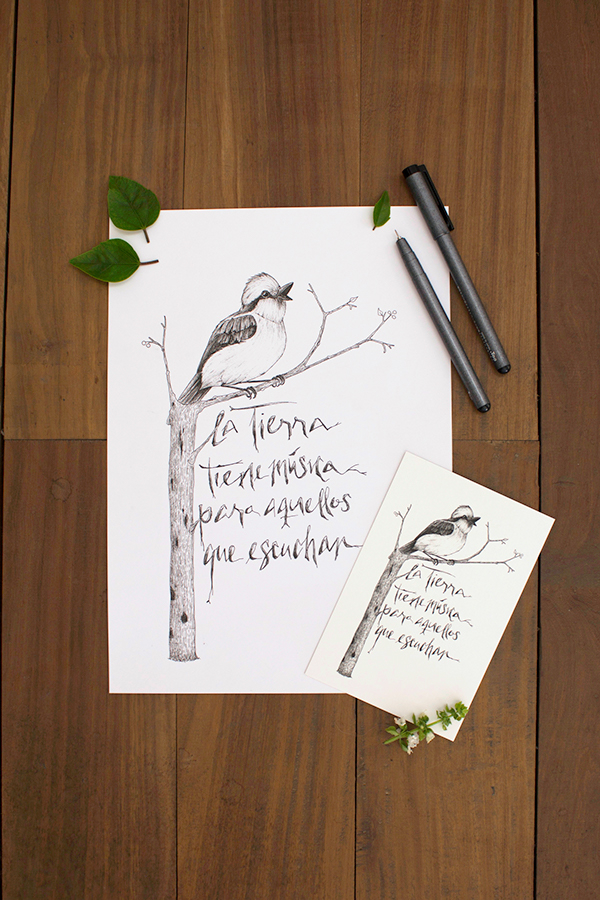 la Tierra
tiene música
para aquellos
que escuchan
la Tierra
tiene música
para aquellos
que escuchan